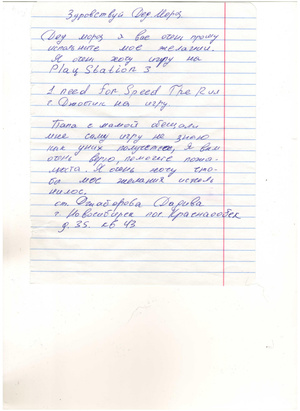 Здровствуй Дед Мороз
Дед мороз я вас очень прошу
исполните мое желании.
Я очень хочу игру на
Play Station 3
1 need for Speed The Run
2. Джостик на игру.
Папа с мамой обещали
мне саму игру не знаю
как у них получется, Я вам
очень верю, помогие пожа-
леста. Я очень хочу что-
бы мое желания исполь
нилос.
от
г. Новосибирск пос Краснообск
д. 35. кв 43